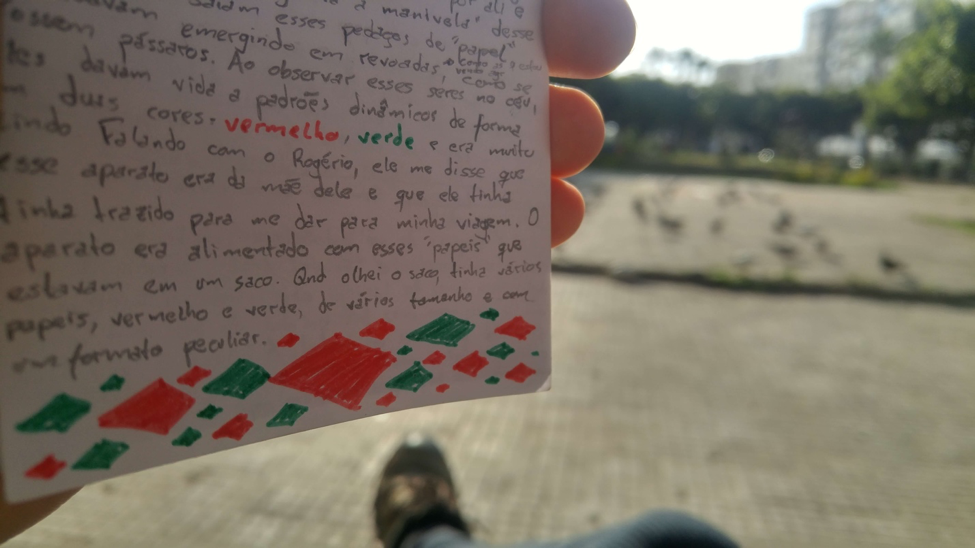 saiam esses pedaços de "papel"
emergindo em revoadas, como se
pássaros. Ao observar esses seres no céu,
davam vida a padrões dinâmicos de forma
duas cores: vermelho, verde e era muito
lindo Falando com o Rogério, ele me disse que
esse aparato era da mãe dele e que ele tinha
tinha trazido para me dar para minha viagem. O
aparato era alimentado com esses "papeis" que
estavam em um saco. Qnd olhei o saco, tinha vários
papeis, vermelho e verde, de vários tamanho e com
um formato peculiar.